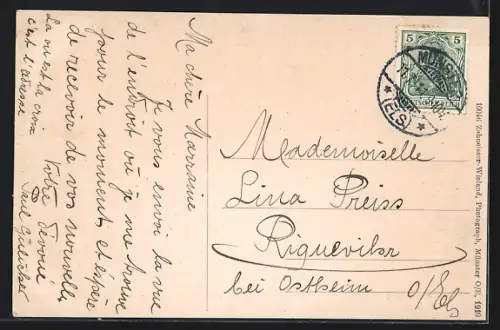 Ma chère Marianne
Je vous envoi la vue
de l'endroit où je me trouve
pour le moment et espère
de recevoir de vos nouvelles
Votre dévoué
Là où est la croix
c'est l'adresse
Mademoiselle
Lina Preiss
Riquewihr
bei Ostheim
O/Els
5 5
MÜNSTER
(ELS)
10446 Zehneisser-Wieland, Photograph, Münster O/E, 1910